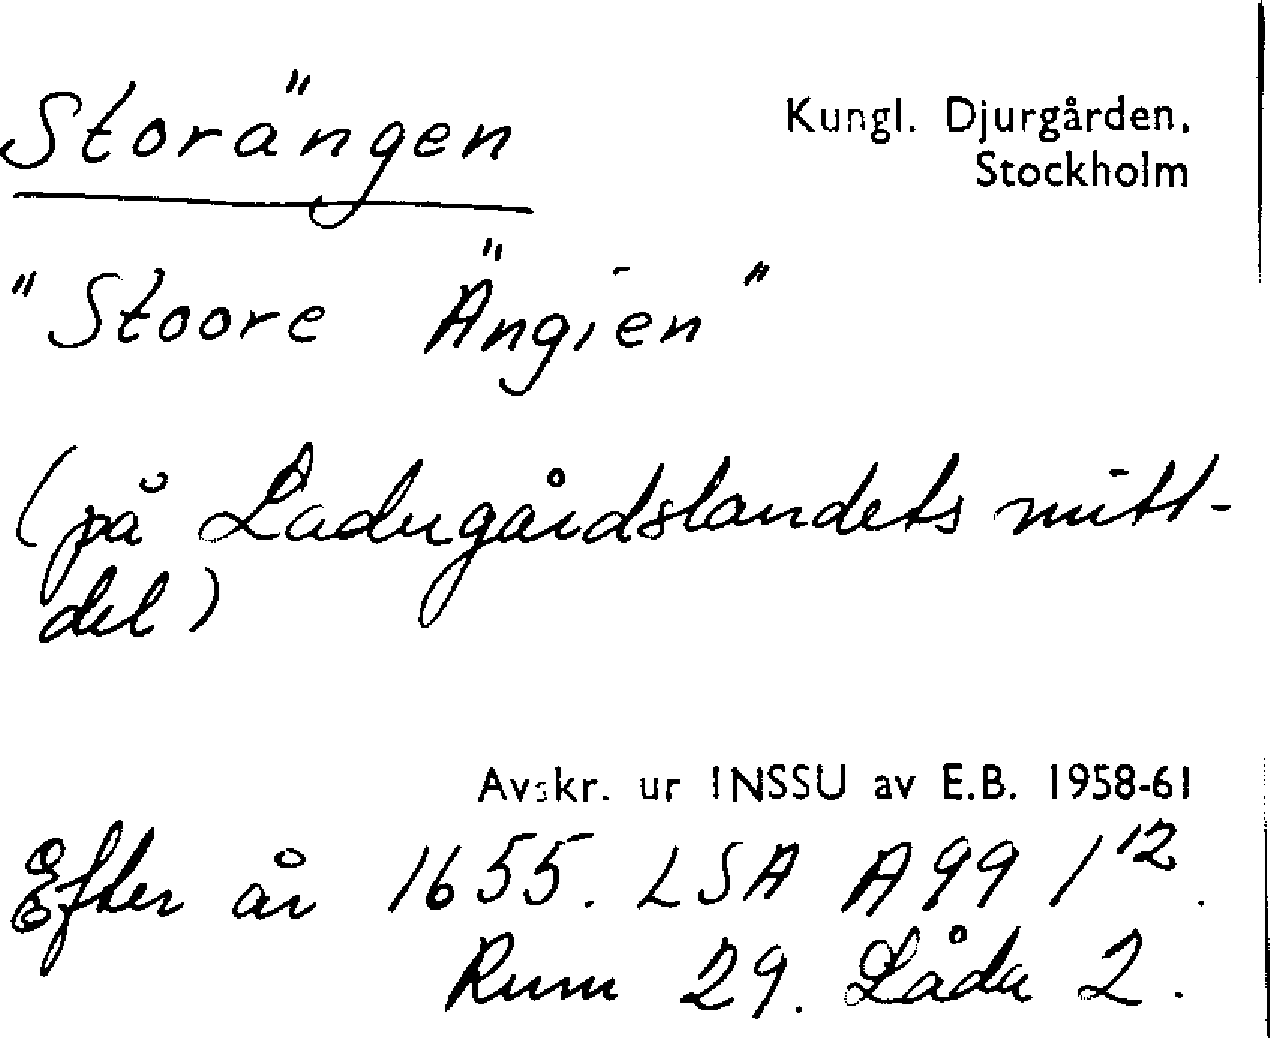 Storängen
Kungl. Djurgården,
Stockholm
"Stoore Ängien"
(på Ladugårdslandets mitt-
del)
Avskr. ur INSSU av E.B. 1958-61
Efter år 1655. LSA A99 1¹².
Rum 29. Låda 2.